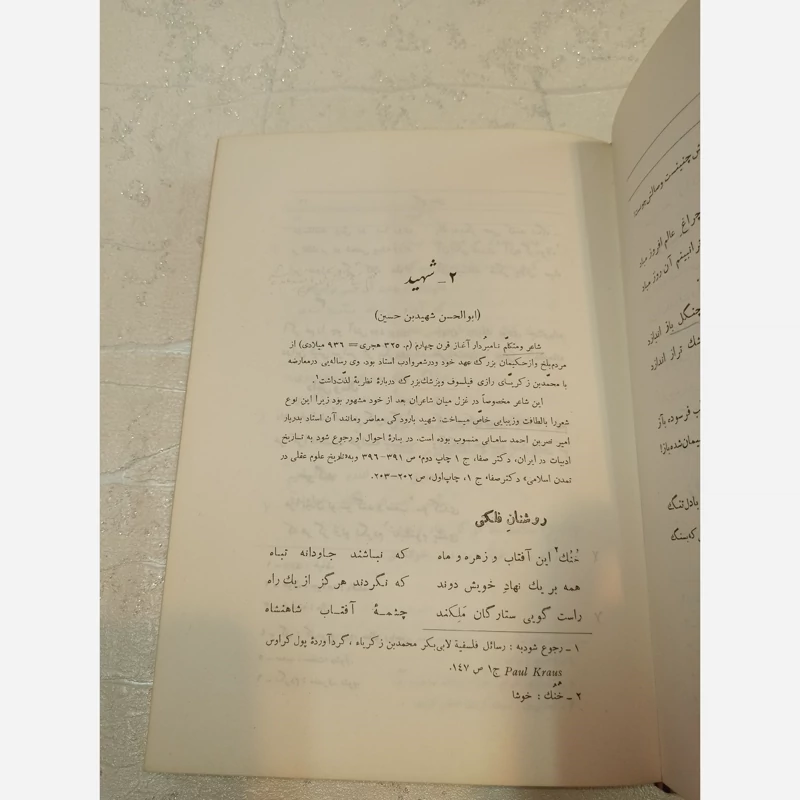 ۲ـ شهید
(ابوالحسن شهیدبن حسین)
شاعر ومتکلّم نامبُردار آغاز قرن چهارم (م. ۳۲۵ هجری = ۹۳۶ میلادی) از
مردم‌بلخ وازحکیمان بزرگ عهد خود ودرشعروادب استاد بود. وی رساله‌یی درمعارضه
با محمّدبن زکریّای رازی فیلسوف وپزشك‌بزرگ دربارهٔ نظریهٔ لذّت‌داشت¹.
این شاعر مخصوصاً در غزل میان شاعران بعد از خود مشهور بود زیرا این نوع
شعررا بالطافت وزیبایی خاصّ میساخت. شهید بارودکی معاصر ومانند آن استاد بدربار
امیر نصربن احمد سامانی منسوب بوده است. در بارهٔ احوال او رجوع شود به تاریخ
ادبیات در ایران، دکتر صفا، ج ۱ چاپ دوم، ص ۳۹۱–۳۹۶ وبه«تاریخ علوم عقلی در
تمدن اسلامی» دکتر صفا، ج ۱، چاپ‌اول، ص ۲۰۲–۲۰۳.
روشنانِ فلکی
خُنُك² این آفتاب و زهره و ماه که نباشند جاودانه تباه
همه بر یك نهادِ خویش دوند که نگردند هرگز از یك راه
راست گویی ستارگان مَلِکند چشمـهٔ آفتـاب شاهنشاه
۱ – رجوع شودبه : رسائل فلسفیة لابی‌بکر محمدبن زکریاء، گردآوردهٔ پول کراوس
Paul Kraus ج۱ ص ۱۴۷.
۲ – خُنُك : خوشا
چراغِ عالم افروز میاد
آن روز مباد
چنگل باز اندازد
تراز اندازد
فرسوده باز
بادل‌تنگ